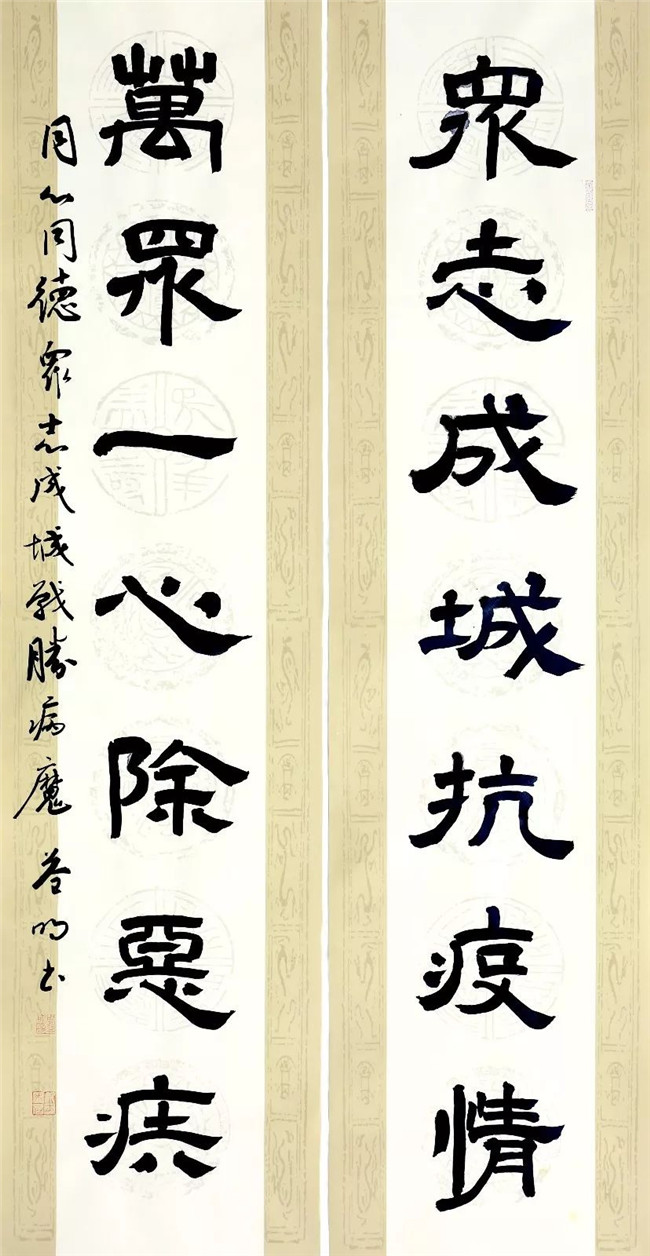 眾志成城抗疫情
萬眾一心除惡疾
同心同德眾志成城戰勝病魔 明书